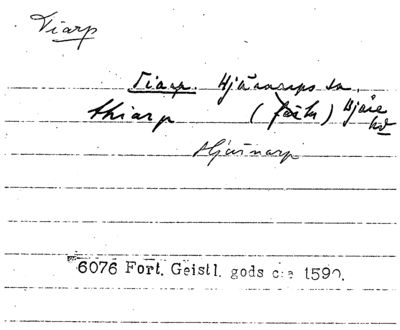 Tiarp
Tiarp. Hjärnarps sn.
thiarp ( ) Bjäre hd
Hjärnarp
6076 Fort. Geistl. gods c:a 1590.